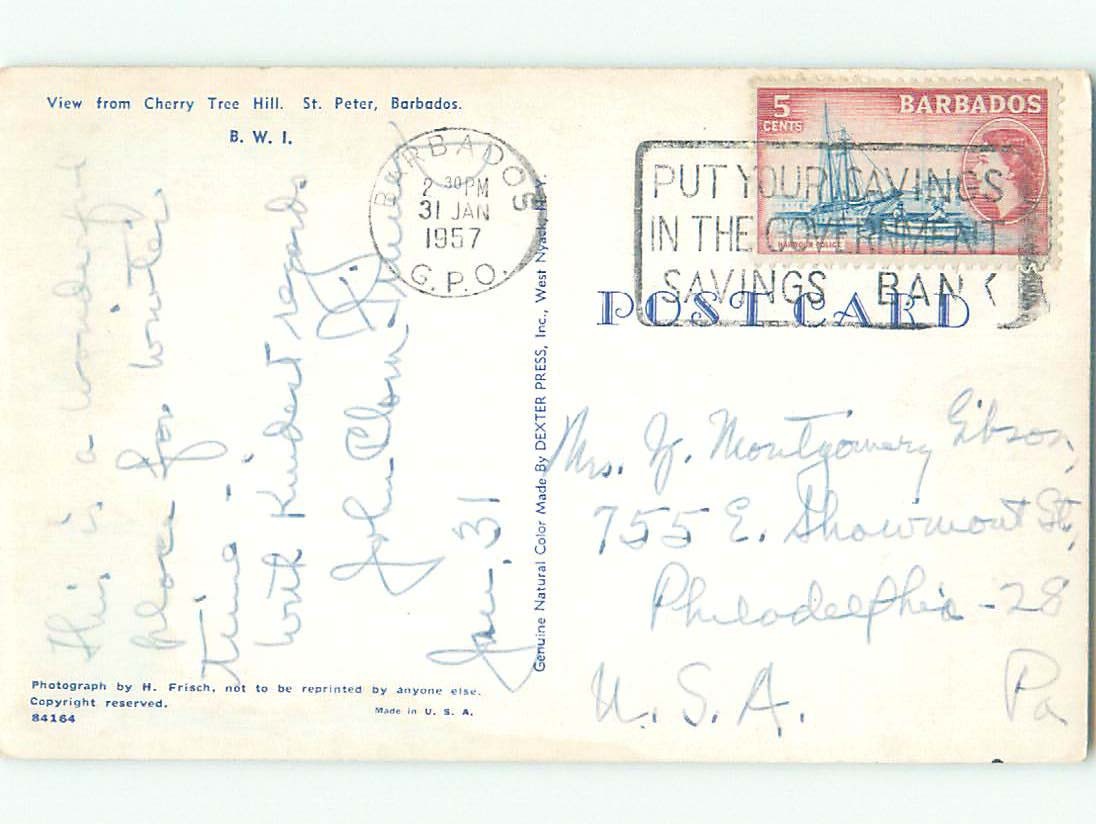 View from Cherry Tree Hill. St. Peter, Barbados.
B. W. I.
This is a wonderful
place for winter
time -
With kindest regards
John Clom
Jan. 31
BARBADOS
2 30PM
31 JAN
1957
G.P.O.
5
CENTS
BARBADOS
HARBOUR POLICE
PUT YOUR SAVINGS
IN THE GOVERNMENT
SAVINGS BANK
POST CARD
Genuine Natural Color Made By DEXTER PRESS, Inc., West Nyack, N.Y.
Mrs. J. Montgomery Gibson,
755 E. Shawmont St,
Philadelphia - 28
U.S.A. Pa
Photograph by H. Frisch, not to be reprinted by anyone else.
Copyright reserved.
84164
Made in U. S. A.